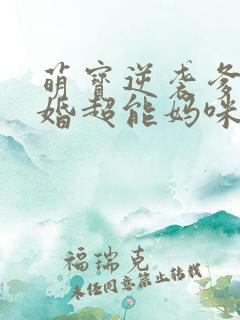 萌宝逆袭爹
婚超能妈咪
福瑞克
未经同意禁止转载